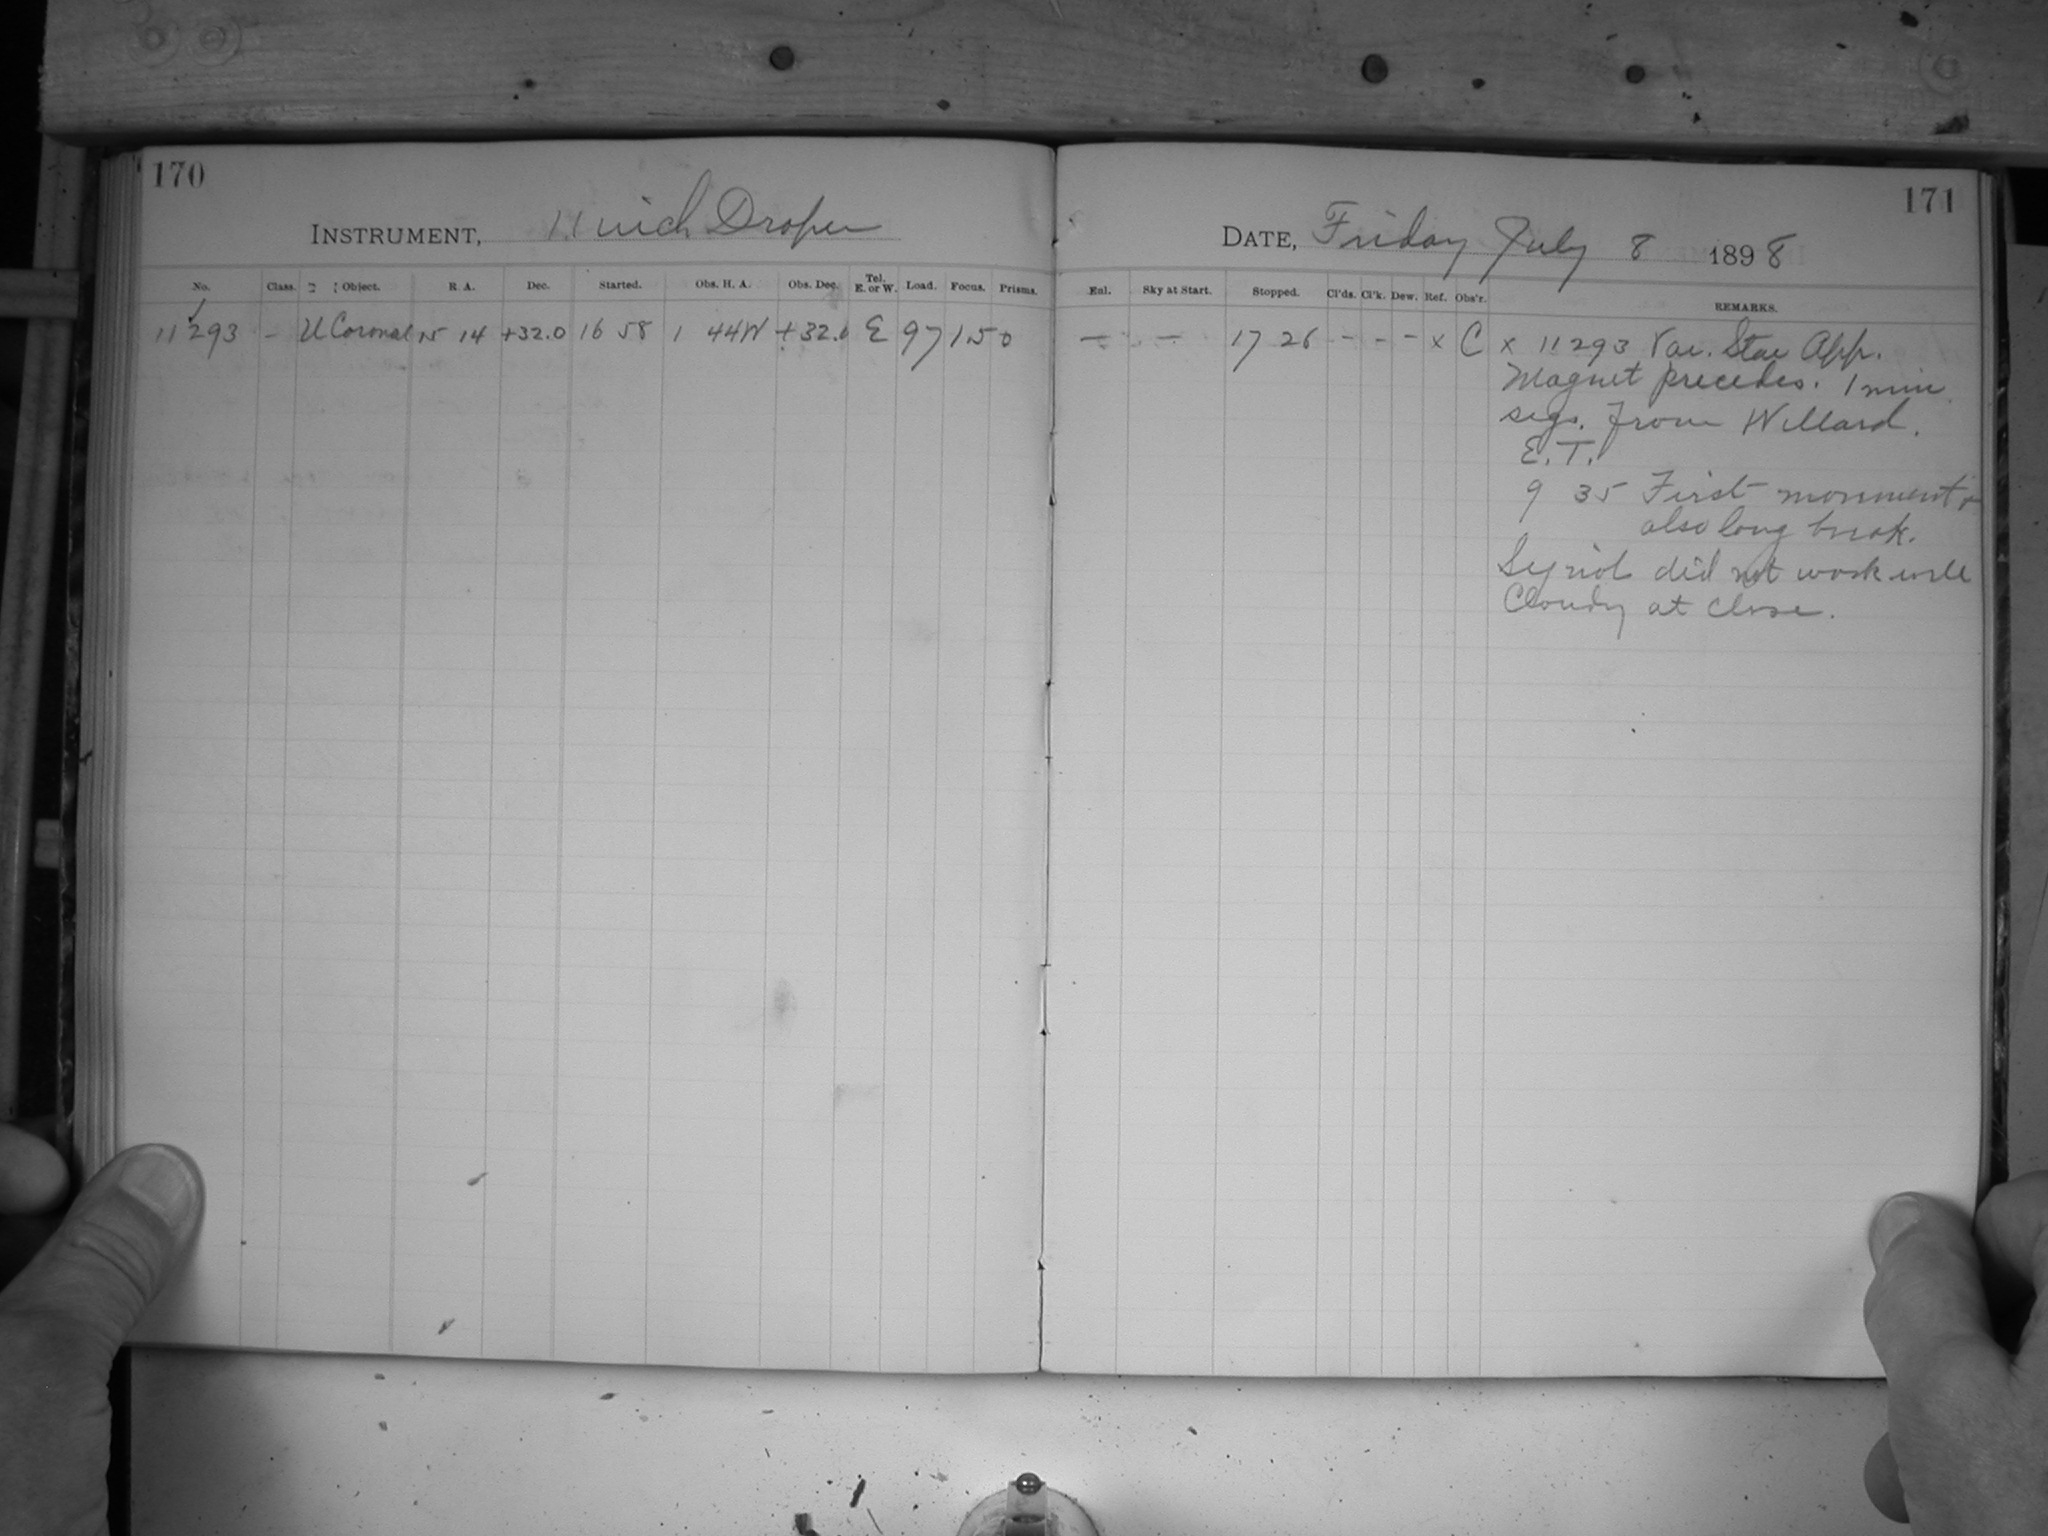 170
INSTRUMENT, 11 inch Draper
No. Class. Object. R. A. Dec. Started. Obs. H. A. Obs. Dec. Tel. E. or W. Load. Focus. Prisms.
11293 – U Coronae 15 14 +32.0 16 58 1 44W +32.0 E 97 1.5 0
171
DATE, Friday July 8 1898
Enl. Sky at Start. Stopped. Cl'ds. Cl'k. Dew. Ref. Obs'r. REMARKS.
– – 17 26 – – – x C x 11293 Var. Star App.
Magnet precedes. 1 min
segs. from Willard.
E.T.
9 35 First movement &
also long break.
did not work well
Cloudy at close.